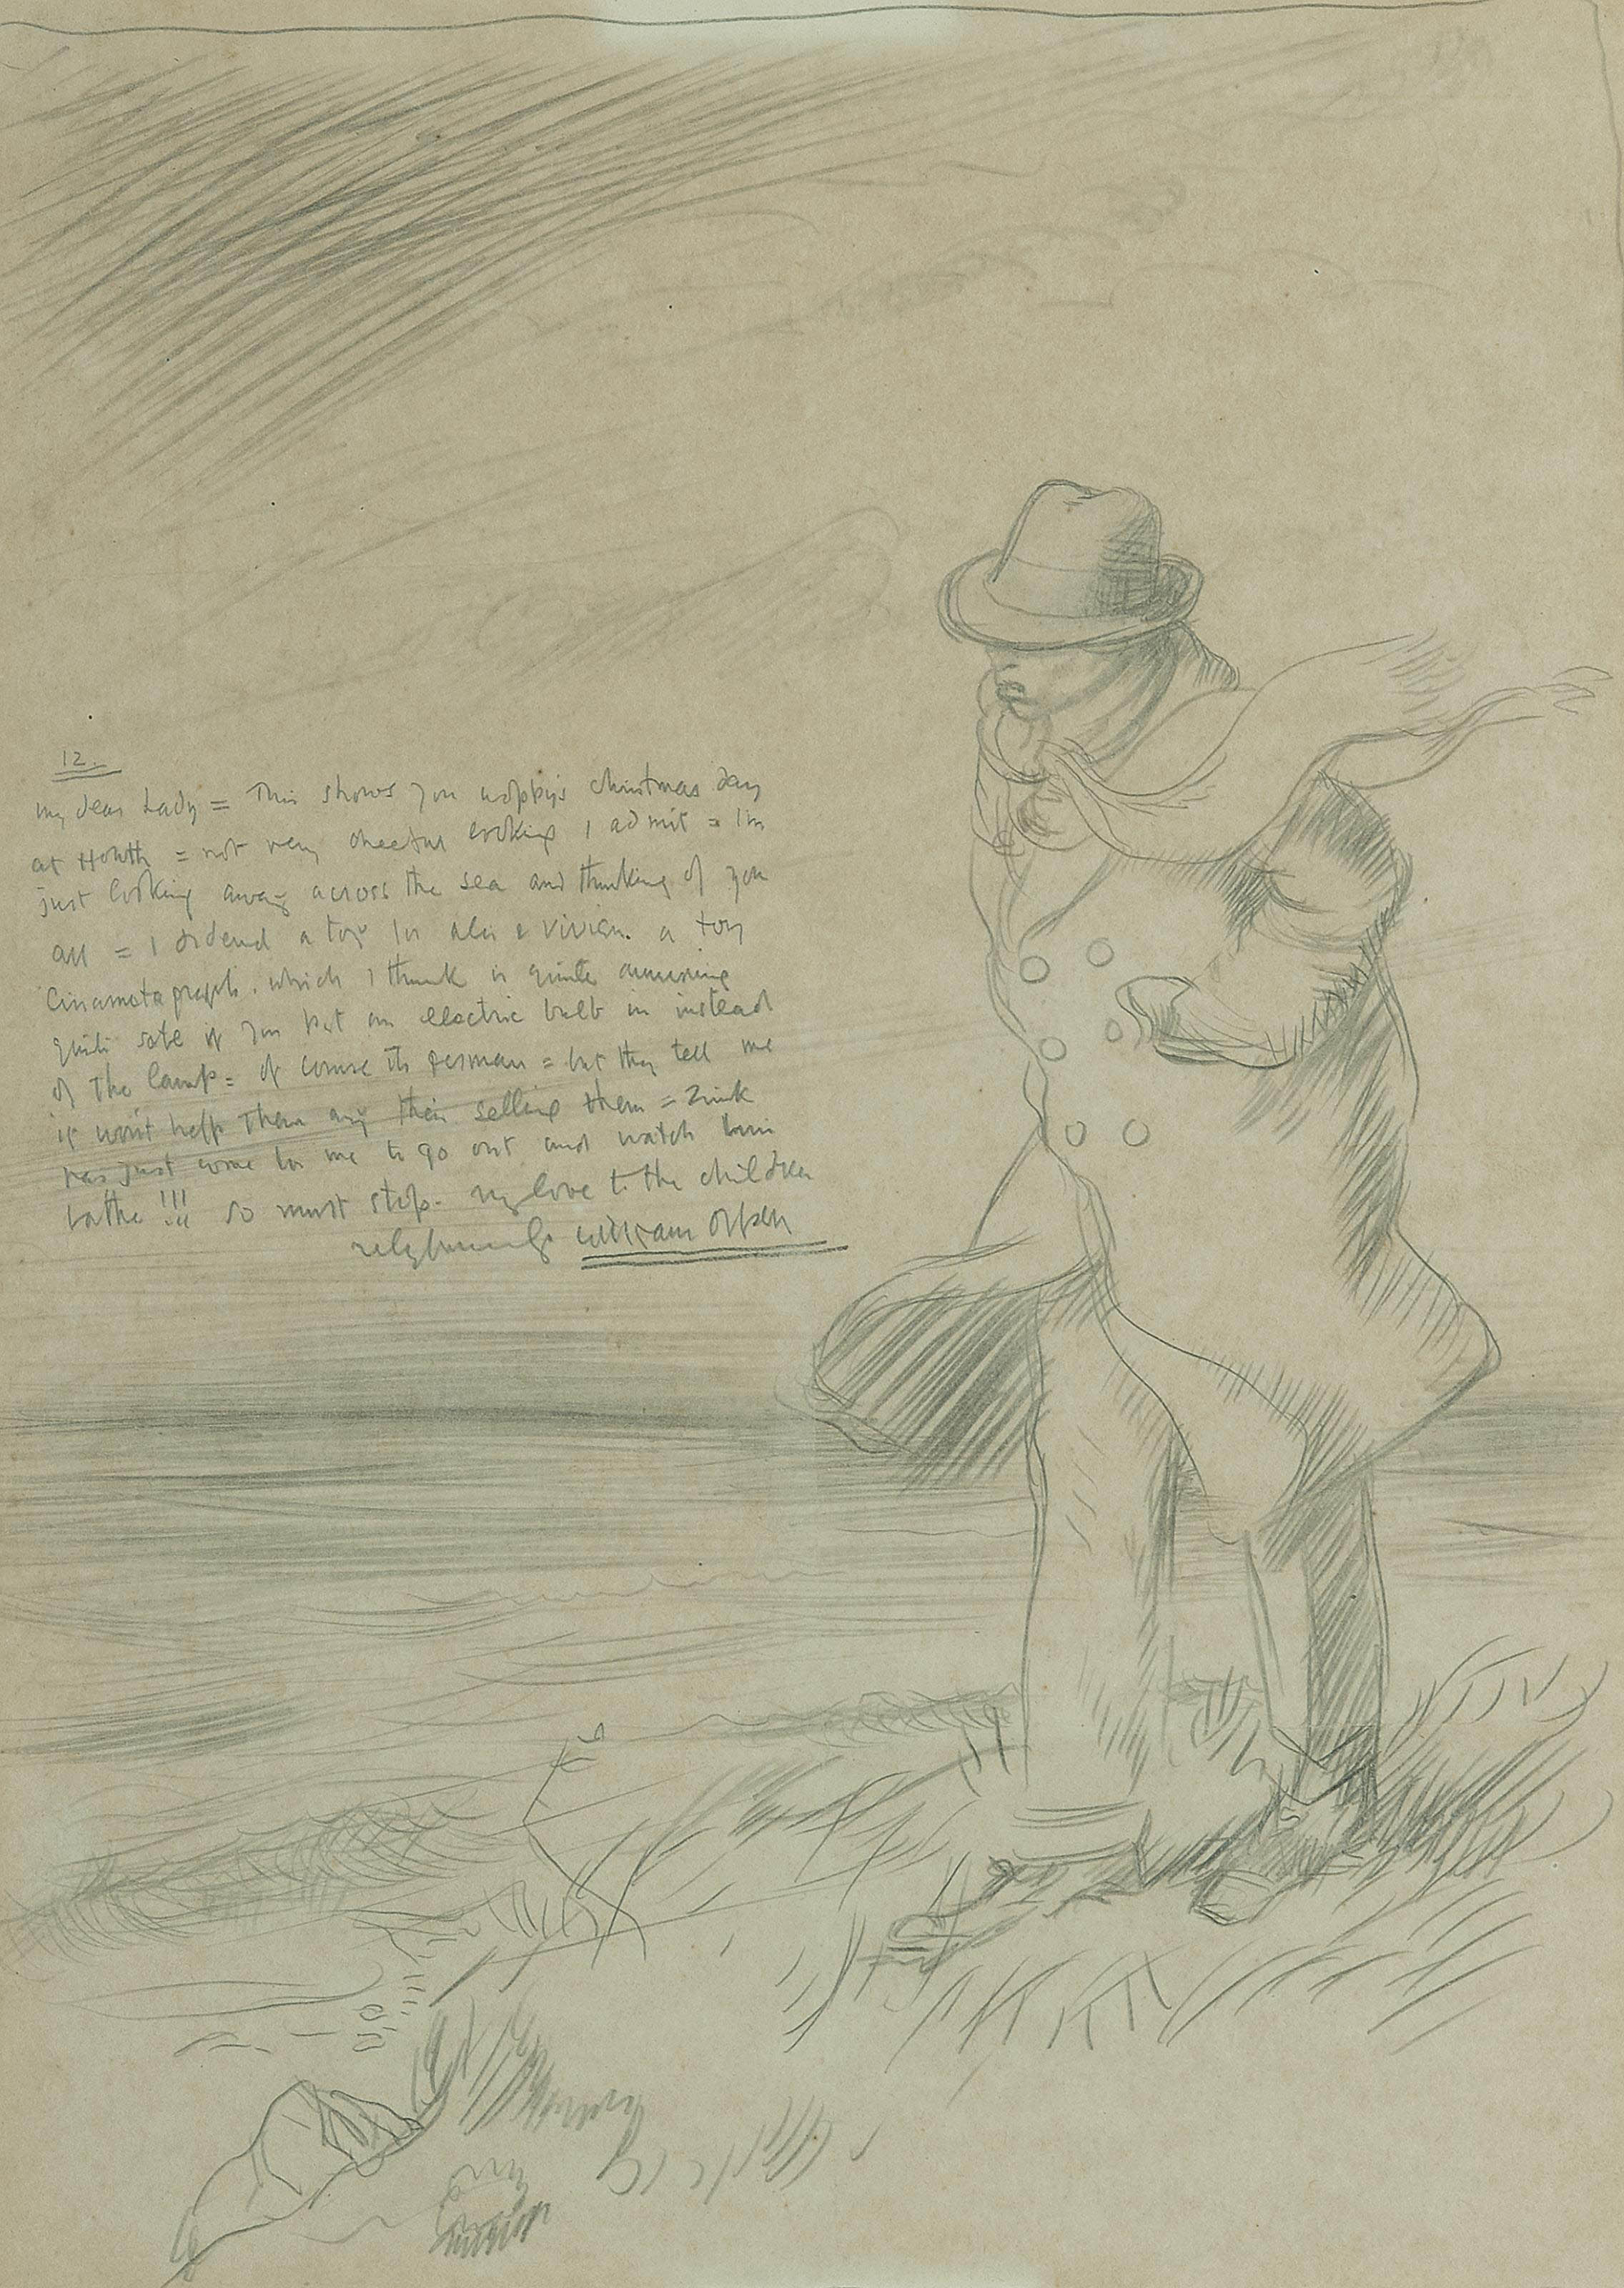 12.
my dear Lady = This shows you woppy's christmas day
at Howth = not very cheerful looking I admit = Im
just looking away across the sea and thinking of you
all = I ordered a toy for & Vivien. a toy
Cinamatograph. which I think is quite amusing
quite safe if you put an electric bulb in instead
of the lamp = of course its German = but they tell me
it won't help them any their selling them = Zink
has just come for me to go out and watch him
bathe !!! so must stop. my love to the children
William Orpen